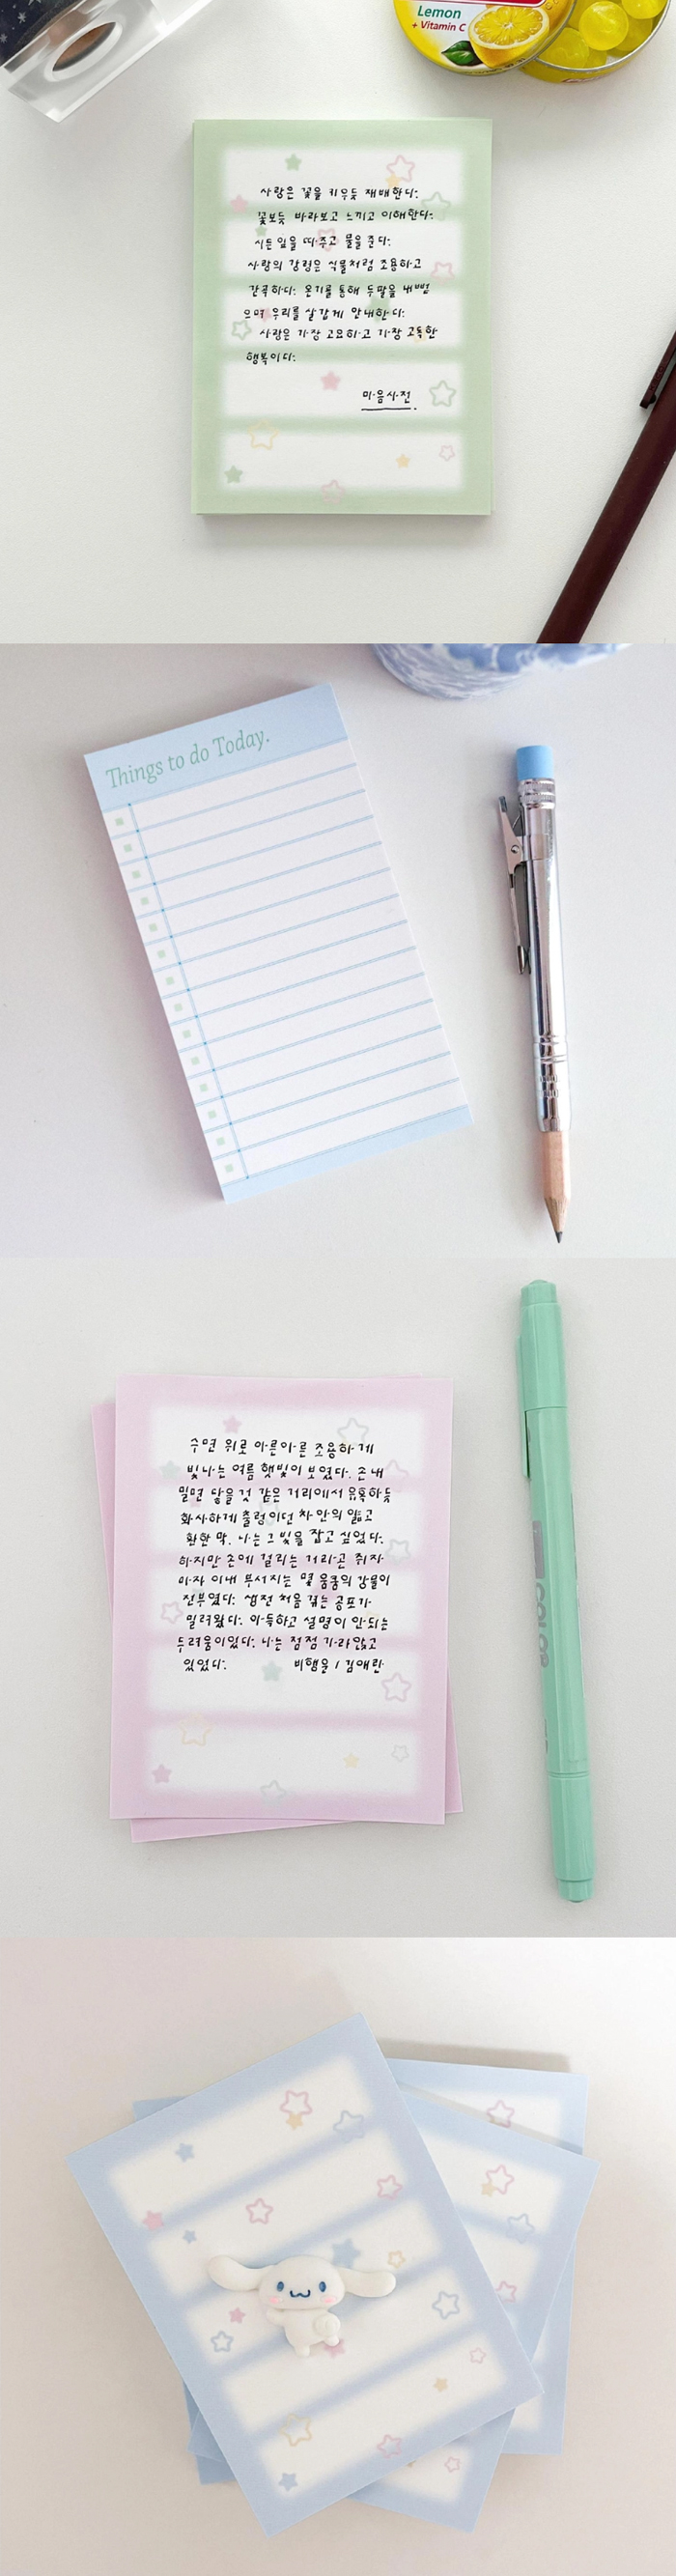 Lemon
+ Vitamin C
사랑은 꽃을 키우듯 재배한다.
꽃보듯 바라보고 느끼고 이해한다.
시든 잎을 떼주고 물을 준다.
사랑의 강령은 식물처럼 조용하고
간곡하다. 온기를 통해 두팔을 내뻗
으며 우리를 살갑게 안내한다.
사랑은 가장 고요하고 가장 고독한
행복이다.
마음사전.
Things to do Today.
수면 위로 아른아른 조용하게
빛나는 여름 햇빛이 보였다. 손 내
밀면 닿을 것 같은 거리에서 유혹하듯
화사하게 출렁이던 차안의 얇고
환한 막. 나는 그 빛을 잡고 싶었다.
하지만 손에 걸리는 거라곤 쥐자
마자 이내 부서지는 몇 움큼의 강물이
전부였다. 생전 처음 겪는 공포가
밀려왔다. 아득하고 설명이 안되는
두려움이었다. 나는 점점 가라앉고
있었다. 비행운 / 김애란
COLOR